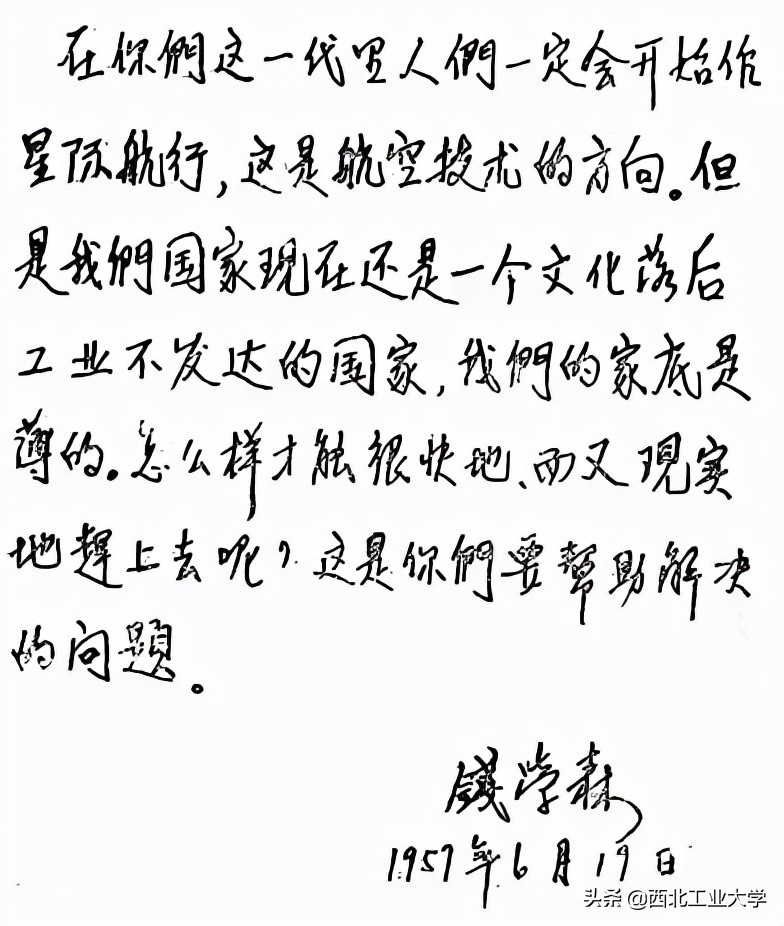 在你們这一代里人們一定会开始作
星际航行，这是航空技术的方向。但
是我們国家現在还是一个文化落后
工业不发达的国家，我們的家底是
薄的。怎么样才能很快地、而又現实
地趕上去呢？这是你們要幫助解决
的问題。
錢学森
1957年6月19日
头条 @西北工业大学